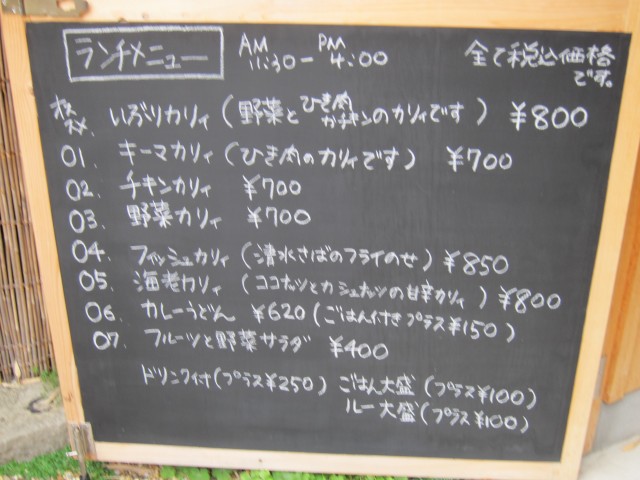 ランチメニュー AM 11:30 - PM 4:00 全て税込価格です。
オススメ. いぶりカリィ (野菜とひき肉かチキンのカリィです) ¥800
01. キーマカリィ (ひき肉のカリィです) ¥700
02. チキンカリィ ¥700
03. 野菜カリィ ¥700
04. フィッシュカリィ (清水さばのフライのせ) ¥850
05. 海老カリィ (ココナッツとカシュナッツの甘辛カリィ) ¥800
06. カレーうどん ¥620 (ごはん付きプラス¥150)
07. フルーツと野菜サラダ ¥400
ドリンク付 (プラス¥250) ごはん大盛 (プラス¥100)
ルー大盛 (プラス¥100)